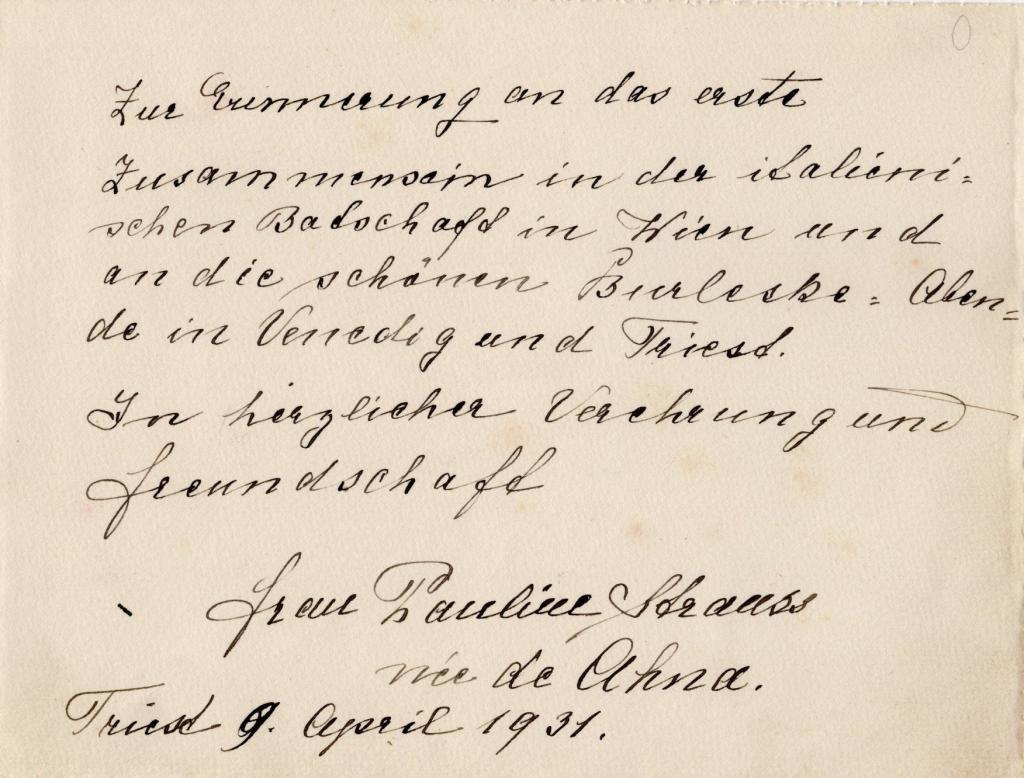 Zur Erinnerung an das erste
Zusammensein in der italieni=
schen Botschaft in Wien und
an die schönen Burleske = Aben=
de in Venedig und Triest.
In herzlicher Verehrung und
Freundschaft
Frau Pauline Strauss
née de Ahna.
Triest 9. April 1931.